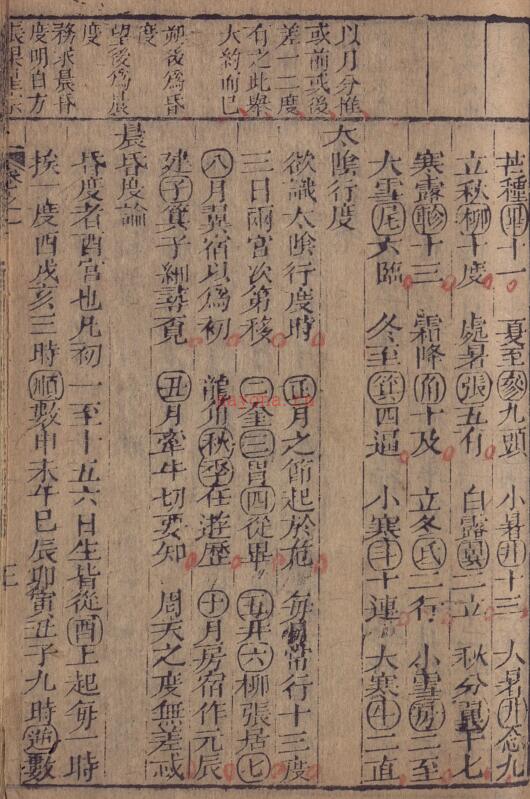 以月分推
或前或後
差一二度
有之此舉
大約而已
朔後爲昏
度
望後爲晨
度
務求晨昏
度明自方
芒種畢十一 夏至參九頭 小暑井十三 大暑井念九
立秋柳十度 處暑張五有 白露翼二立 秋分翼十七
寒露軫十三 霜降角十及 立冬氐二行 小雪房二至
大雪尾六臨 冬至箕四逼 小寒斗十連 大寒牛二直
太陰行度
欲識太陰行度時 正月之節起於危 每日常行十三度
三日兩宮次第移 二奎三胃四從畢 五井六柳張居七
八月翼宿以爲初 龍角秋季在遊歷 十月房宿作元辰
建子箕子細尋覓 丑月牽牛切要知 周天之度無差忒
晨昏度論
昏度者酉宮也凡初一至十五六日生皆從酉上起每一時
挨一度酉戌亥三時順數申未午巳辰卯寅丑子九時逆數
卷之一
三